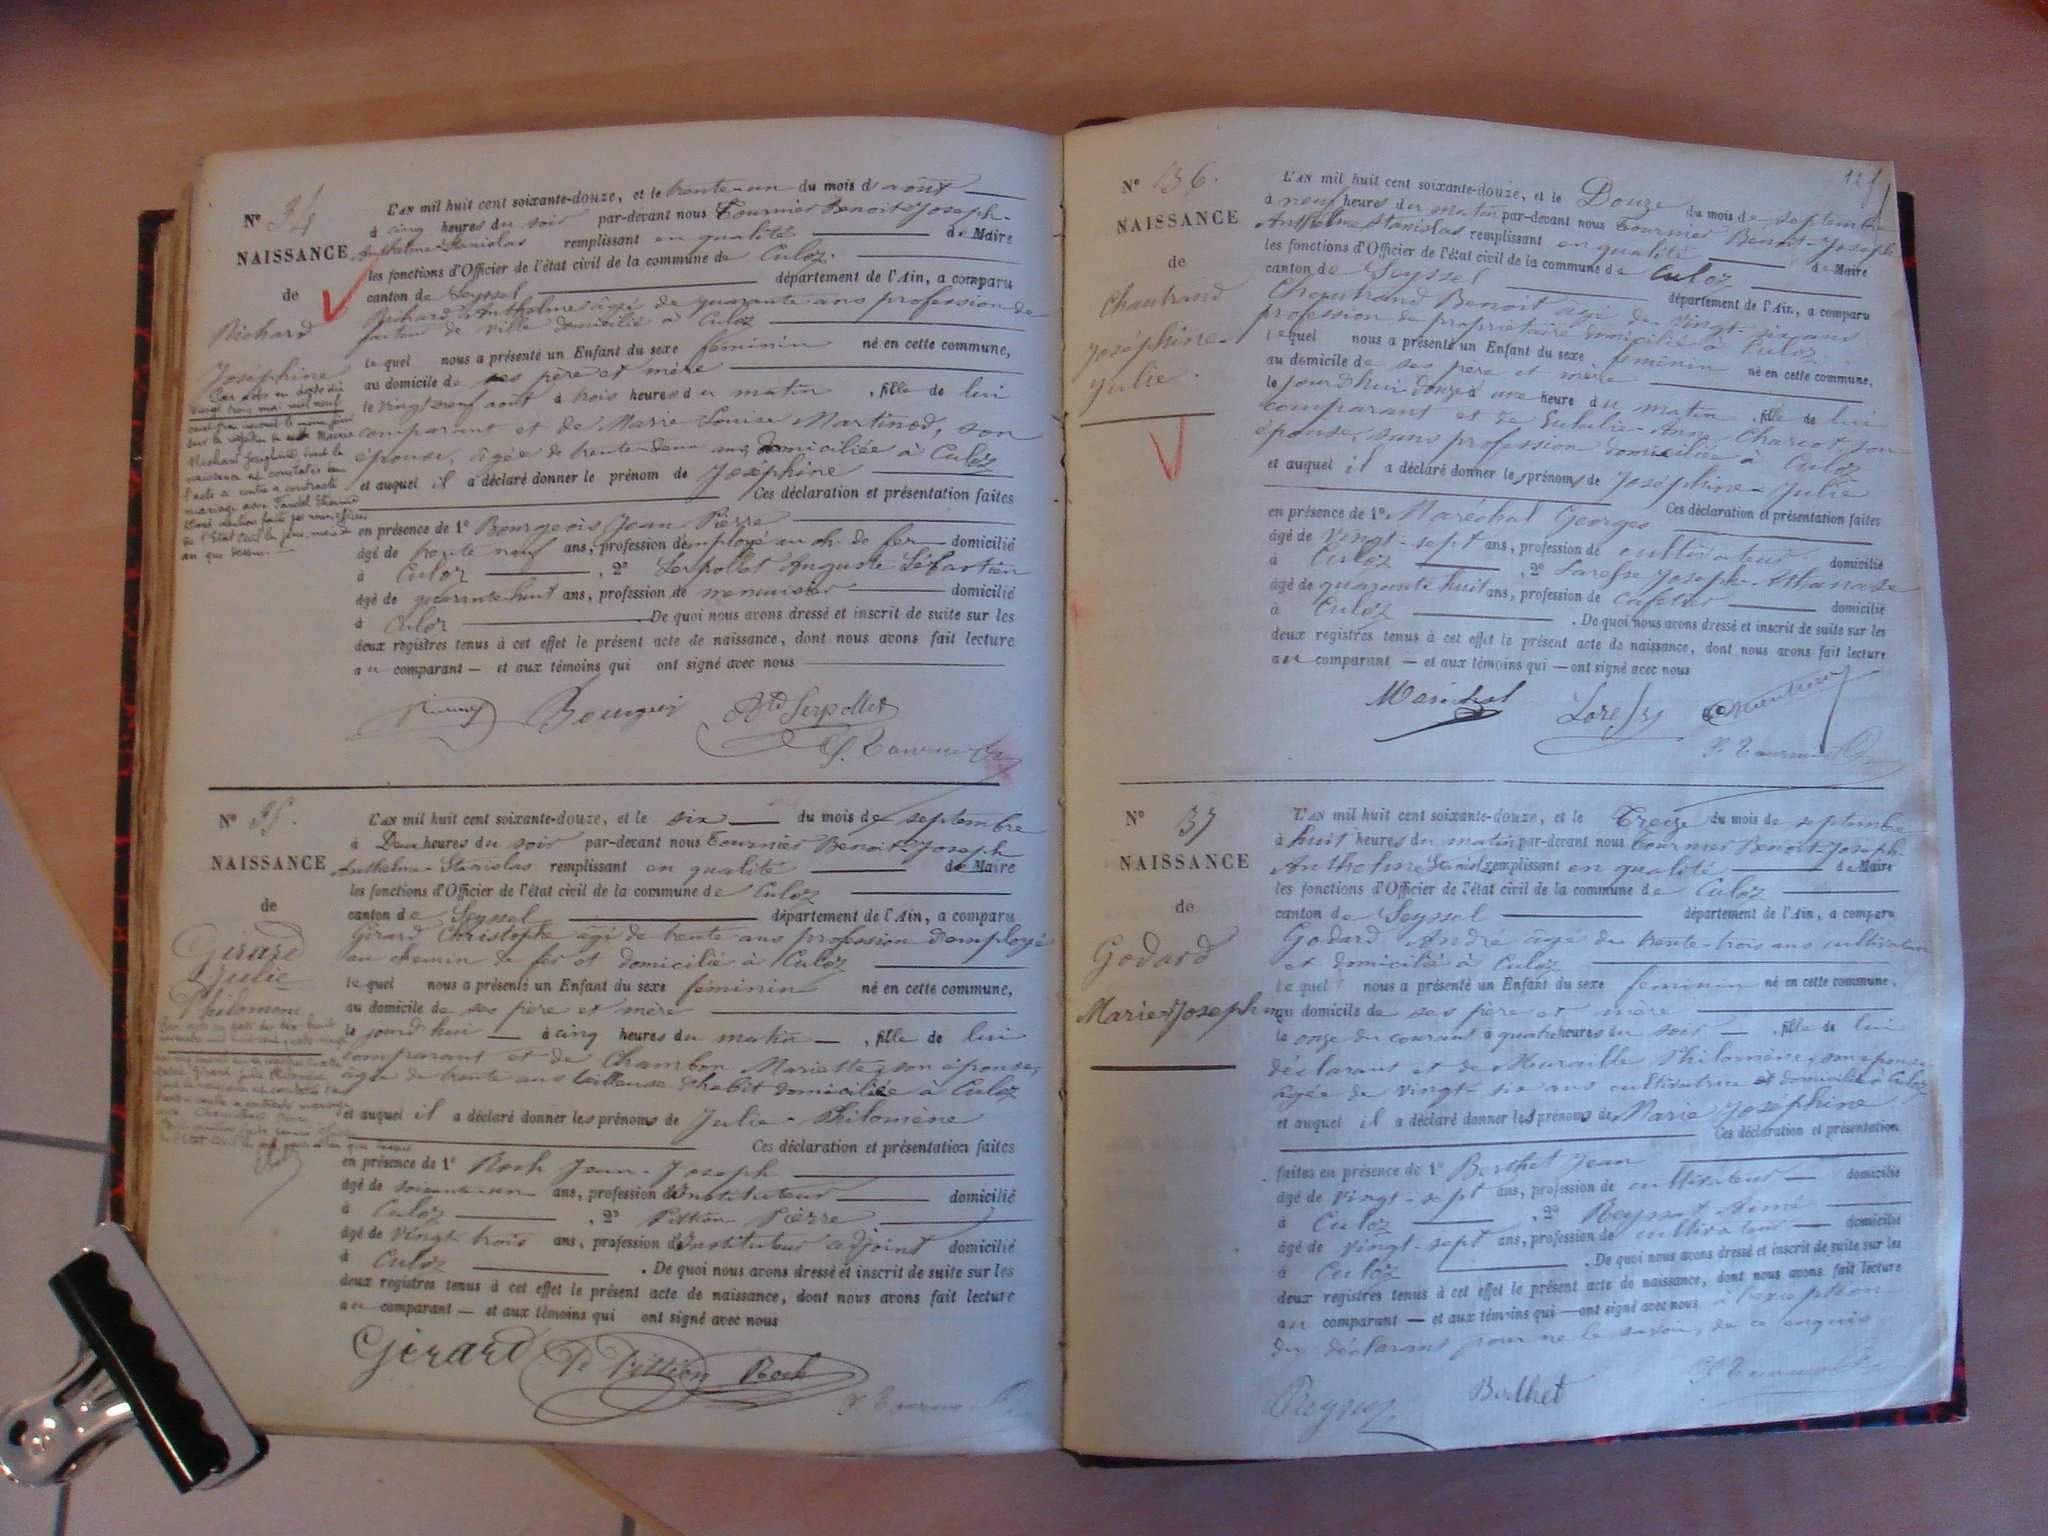 N° 34
NAISSANCE
de
Richard
Joséphine
L'AN mil huit cent soixante-douze, et le trente-un du mois d août
à cinq heures du soir par-devant nous Tournier Benoit-Joseph-
Anthelme-Stanislas remplissant en qualité de Maire
les fonctions d'Officier de l'état civil de la commune de Culoz.
canton de Seyssel département de l'Ain, a comparu
Richard Anthelme âgé de quarante ans profession de
facteur de ville domicilié à Culoz
lequel nous a présenté un Enfant du sexe feminin né en cette commune,
au domicile de ses père et mère
le vingt neuf août à trois heures du matin, fille de lui
comparant et de Marie Louise Martinod, son
épouse, âgée de trente-deux ans, domiciliée à Culoz
et auquel il a déclaré donner le prénom de Joséphine
Ces déclaration et présentation faites
en présence de 1° Bourgeois Jean Pierre
âgé de trente neuf ans, profession d'employé au ch. de fer domicilié
à Culoz, 2° Serpollet Auguste Sébastien
âgé de quarante-huit ans, profession de menuisier domicilié
à Culoz. De quoi nous avons dressé et inscrit de suite sur les
deux registres tenus à cet effet le présent acte de naissance, dont nous avons fait lecture
au comparant — et aux témoins qui ont signé avec nous
Bourgeois Serpollet
Tournier
N° 35.
NAISSANCE
de
Girard
Julie
Philomène
L'AN mil huit cent soixante-douze, et le six du mois de septembre
à Deux heures du soir par-devant nous Tournier Benoit-Joseph
Anthelme-Stanislas remplissant en qualité de Maire
les fonctions d'Officier de l'état civil de la commune de Culoz
canton de Seyssel département de l'Ain, a comparu
Girard Christophe âgé de trente ans profession d'employé
au chemin de fer et domicilié à Culoz
lequel nous a présenté un Enfant du sexe féminin né en cette commune,
au domicile de ses père et mère
le jourd'hui — à cinq heures du matin —, fille de lui
comparant et de Chambon Mariette, son épouse,
âgée de trente ans tailleuse d'habit domiciliée à Culoz
et auquel il a déclaré donner les prénoms de Julie-Philomène
Ces déclaration et présentation faites
en présence de 1° Roch Jean-Joseph
âgé de soixante-un ans, profession d'Instituteur domicilié
à Culoz, 2° Pittion Pierre
âgé de vingt trois ans, profession d'Instituteur adjoint domicilié
à Culoz. De quoi nous avons dressé et inscrit de suite sur les
deux registres tenus à cet effet le présent acte de naissance, dont nous avons fait lecture
au comparant — et aux témoins qui ont signé avec nous
Girard P. Pittion Roch
Tournier
N° 36.
NAISSANCE
de
Chautrand
Joséphine-
Julie.
L'AN mil huit cent soixante-douze, et le Douze du mois de septembre
à neuf heures du matin par-devant nous Tournier Benoit-Joseph
Anthelme Stanislas remplissant en qualité de Maire
les fonctions d'Officier de l'état civil de la commune de Culoz
canton de Seyssel département de l'Ain, a comparu
Chautrand Benoit âgé de vingt-six ans
profession de propriétaire domicilié à Culoz
lequel nous a présenté un Enfant du sexe feminin né en cette commune,
au domicile de ses père et mère
le jourd'hui douze à une heure du matin, fille de lui
comparant et de Eulalie-Anne Charcot, son
épouse, sans profession domiciliée à Culoz
et auquel il a déclaré donner les prénoms de Joséphine-Julie
Ces déclaration et présentation faites
en présence de 1° Maréchal Georges
âgé de vingt-sept ans, profession de cultivateur domicilié
à Culoz, 2° Joseph-Athanase
âgé de quarante huit ans, profession de cafetier domicilié
à Culoz. De quoi nous avons dressé et inscrit de suite sur les
deux registres tenus à cet effet le présent acte de naissance, dont nous avons fait lecture
au comparant — et aux témoins qui — ont signé avec nous
Maréchal Chautrand
Tournier
N° 37
NAISSANCE
de
Godard
Marie-Joséphine
L'AN mil huit cent soixante-douze, et le Treize du mois de septembre
à huit heures du matin par-devant nous Tournier Benoit-Joseph
Anthelme Stanislas remplissant en qualité de Maire
les fonctions d'Officier de l'état civil de la commune de Culoz
canton de Seyssel département de l'Ain, a comparu
Godard André âgé de trente-trois ans cultivateur
et domicilié à Culoz
lequel nous a présenté un Enfant du sexe feminin né en cette commune,
au domicile de ses père et mère
le onze du courant à quatre heures du soir —, fille de lui
déclarant et de Muraille Philomène, son épouse,
âgée de vingt-six ans cultivatrice et domiciliée à Culoz
et auquel il a déclaré donner les prénoms de Marie Joséphine
Ces déclaration et présentation
faites en présence de 1° Berthet Jean
âgé de vingt-sept ans, profession de cultivateur — domicilié
à Culoz, 2° Aimé
âgé de vingt-sept ans, profession de cultivateur — domicilié
à Culoz. De quoi nous avons dressé et inscrit de suite sur les
deux registres tenus à cet effet le présent acte de naissance, dont nous avons fait lecture
au comparant — et aux témoins qui — ont signé avec nous à l'exception
du déclarant pour ne le savoir, de ce enquis
Berthet Tournier